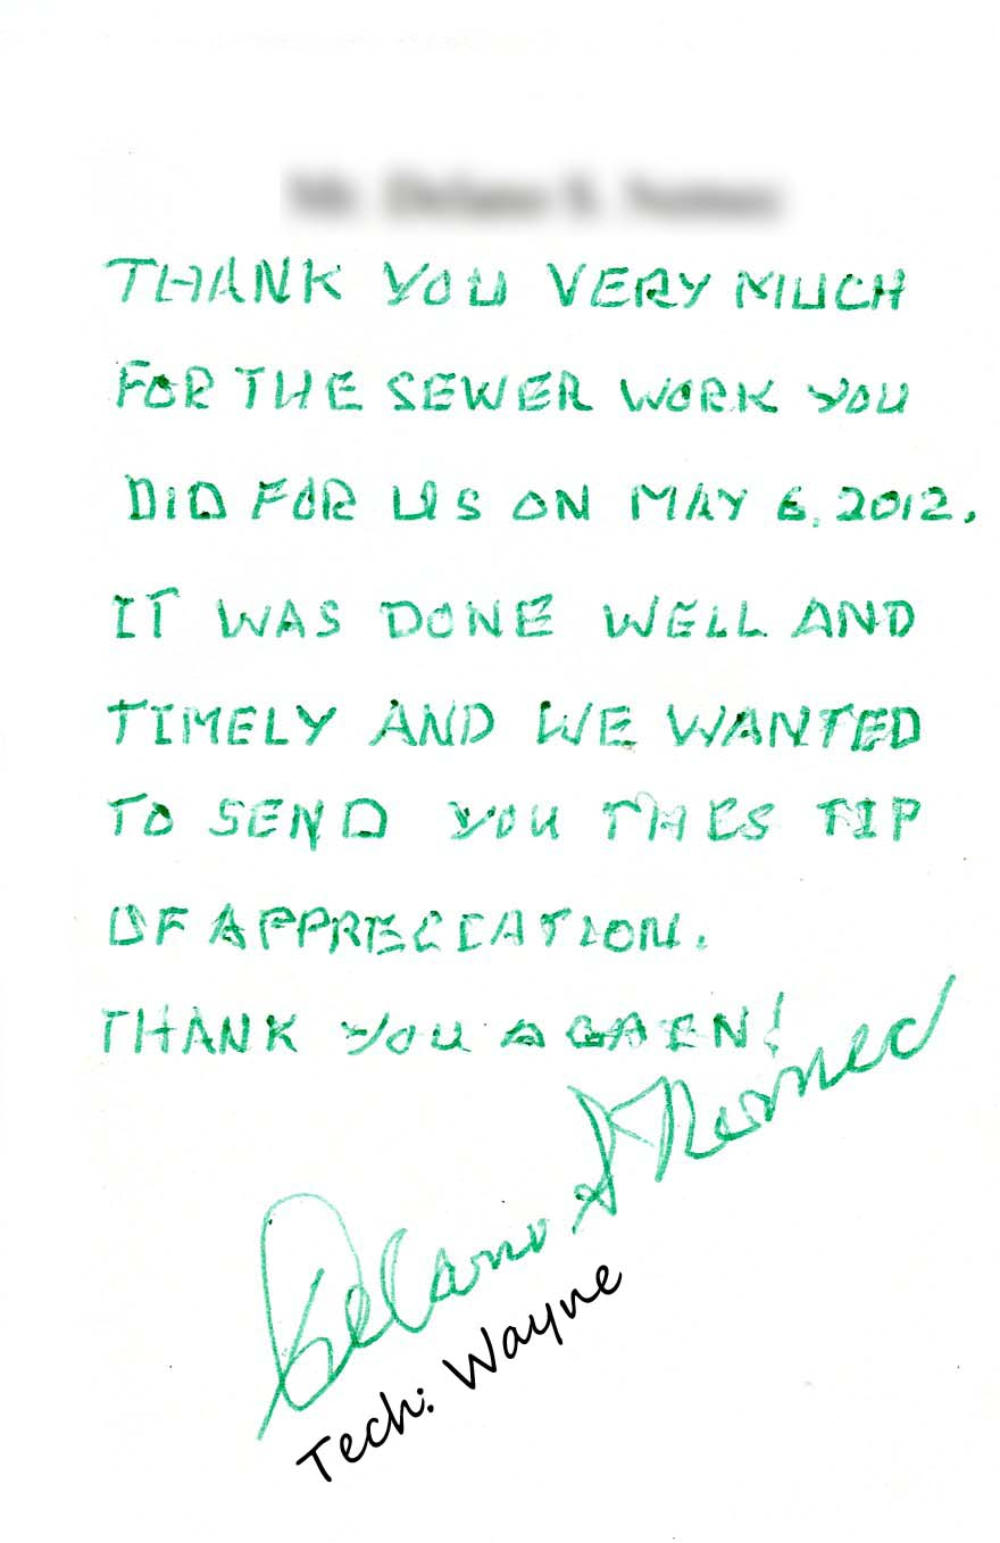 THANK YOU VERY MUCH
FOR THE SEWER WORK YOU
DID FOR US ON MAY 6, 2012.
IT WAS DONE WELL AND
TIMELY AND WE WANTED
TO SEND YOU THIS TIP
OF APPRECIATION.
THANK YOU AGAIN!
Delano S
Tech: Wayne